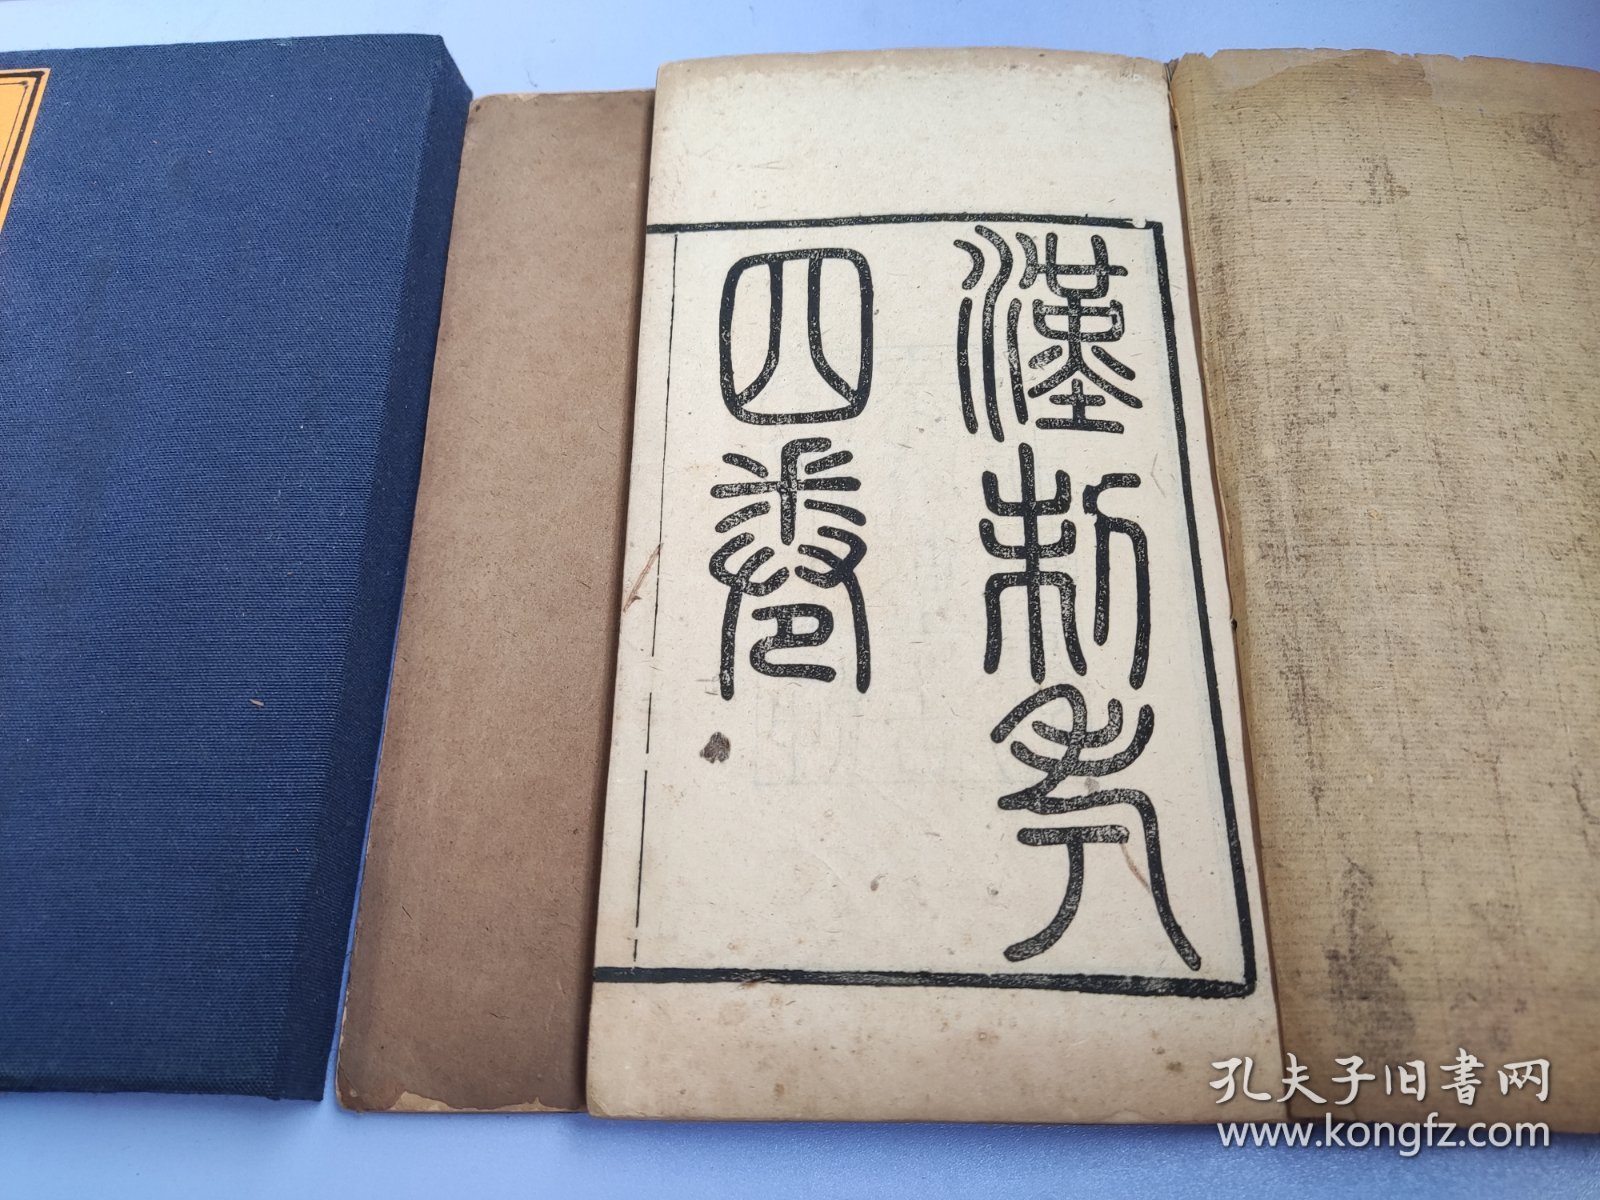 漢制考
四卷
孔夫子旧书网
www.kongfz.com